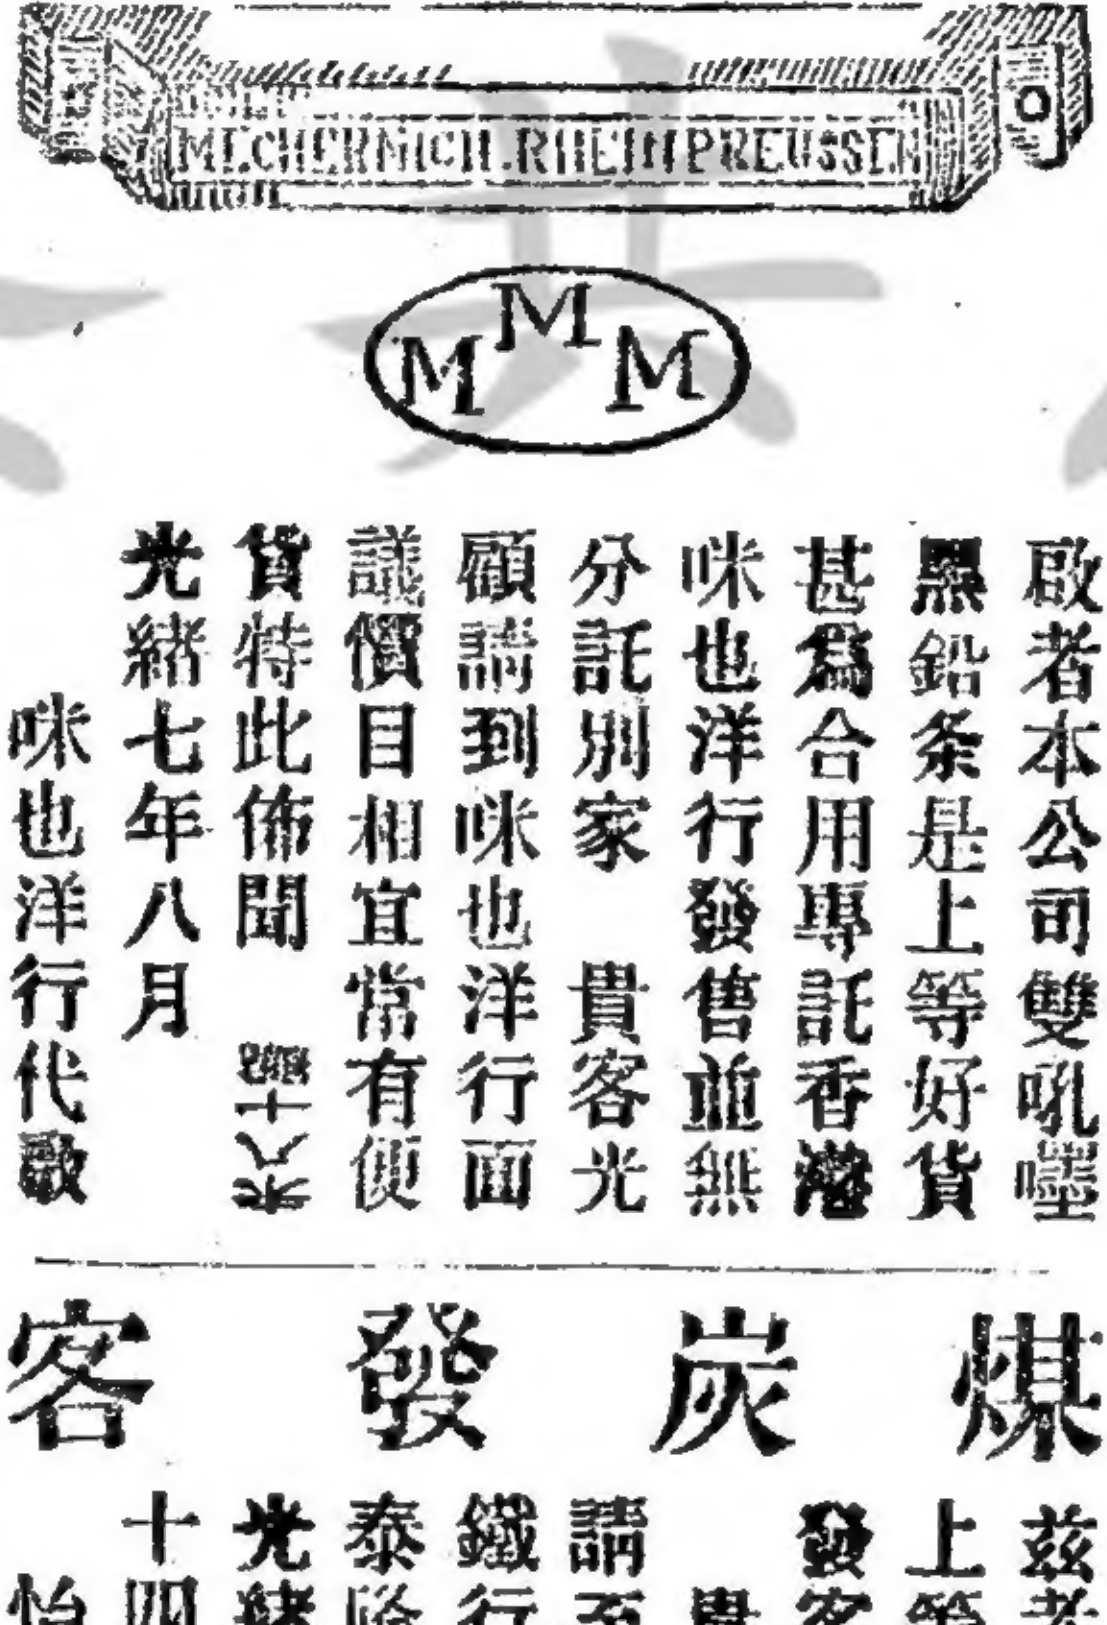 MECHERNICH.RHEINPREUSSEN
M M M
啟者本公司雙吼嚜
黑鉛条是上等好貨
甚爲合用專託香港
咪也洋行發售並無
分託別家　貴客光
顧請到咪也洋行面
議價目相宜常有便
貨特此佈聞
光緒七年八月
咪也洋行代啟
煤炭發客
茲者
上等
發客
貴
請至
鐵行
泰
光緒
十四
怡